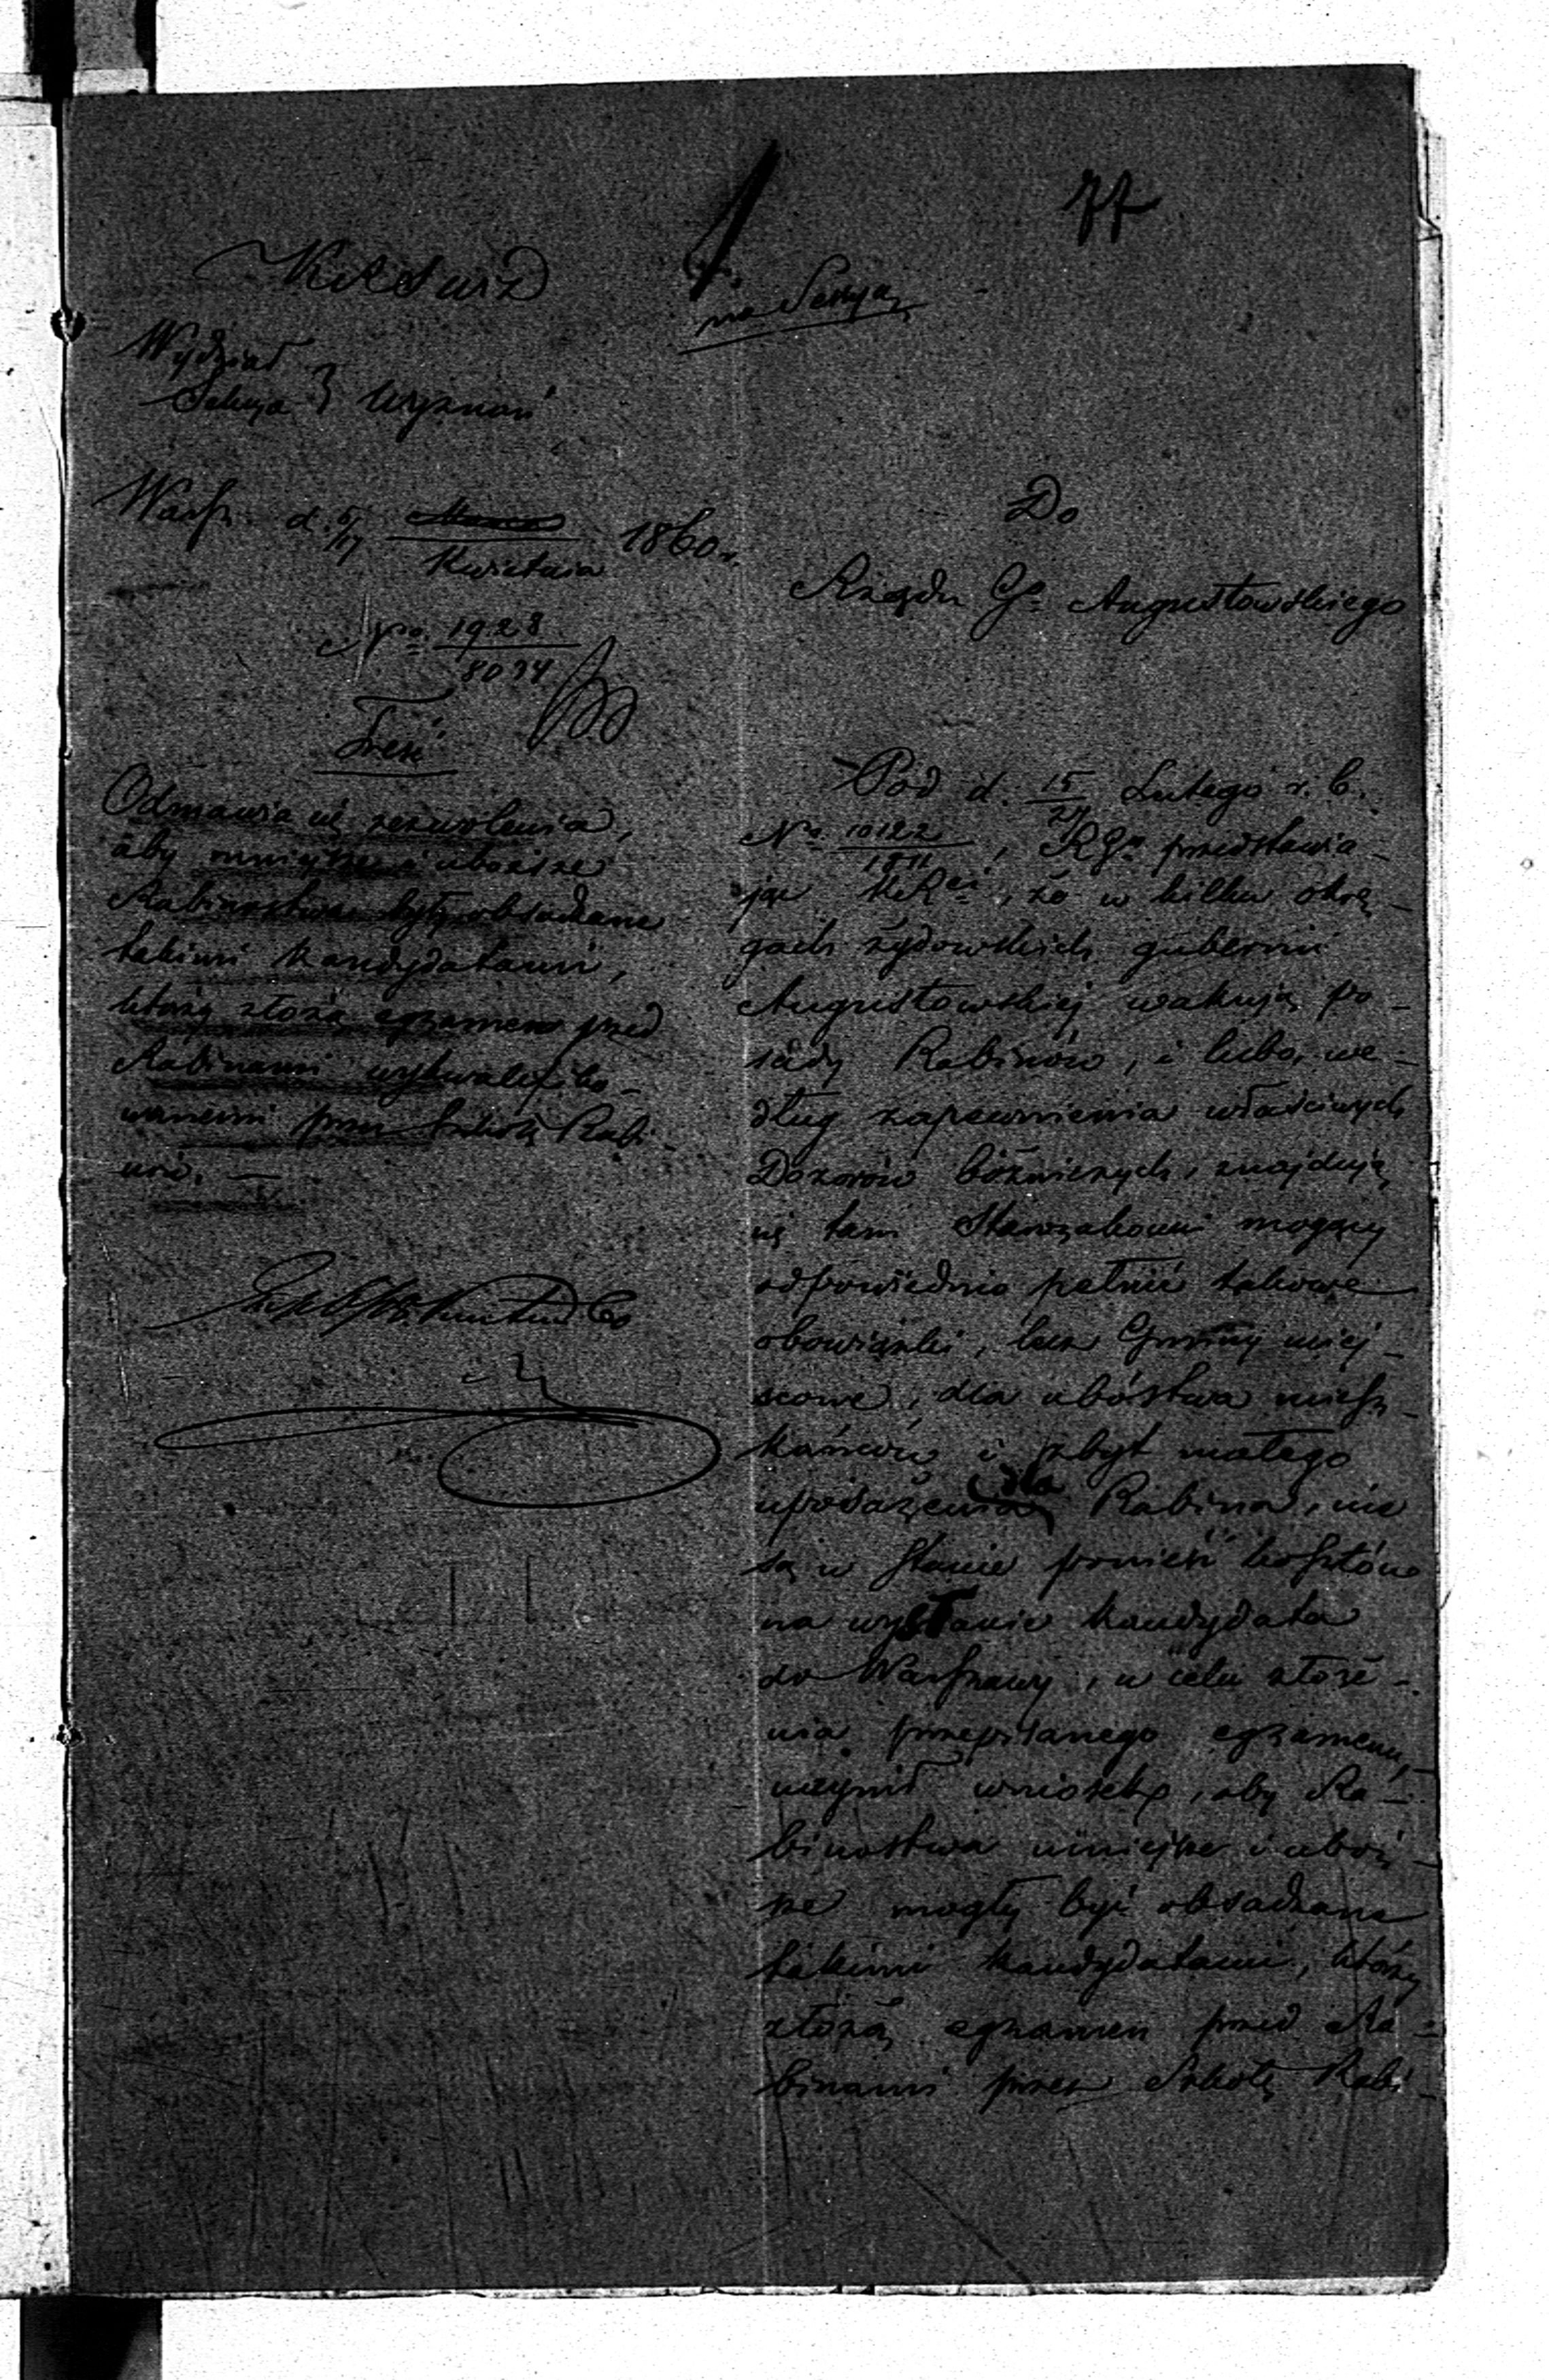 77
na Sessyą
Wydział
Sekcya } Wyznań
Warsz. d. 5/17 Kwietnia 1860 r.
No 1928/8034
Treść
Odmawia się zezwolenia,
aby mniejsze i uboższe
Rabinostwa były obsadzane
takimi kandydatami,
którzy złożą egzamen przed
Rabinami wykwalifiko-
wanemi przez Szkołę Rabi-
nów. —
Do
Rządu Go Augustowskiego
Pod d. 15/27 Lutego r. b.
No 10122/1811, RGn przedstawia-
jąc KRci, że w kilku okrę-
gach żydowskich gubernii
Augustowskiej wakują po-
sady Rabinów, i lubo, we-
dług zapewnienia właściwych
Dozorów bóżniczych, znajdują
się tam Starozakonni mogący
odpowiednio pełnić takowe
obowiązki, lecz Gminy miej-
scowe, dla ubóstwa miesz-
kańców i zbyt małego
uposażenia dla Rabina, nie
są w stanie ponieść kosztów
na wysłanie kandydata
do Warszawy, w celu złoże-
nia przepisanego egzamenu,
uczynił wniosek, aby Ra-
binostwa mniejsze i uboż-
sze mogły być obsadzane
takimi kandydatami, którzy
złożą egzamen przed Ra-
binami przez Szkołę Rabi-